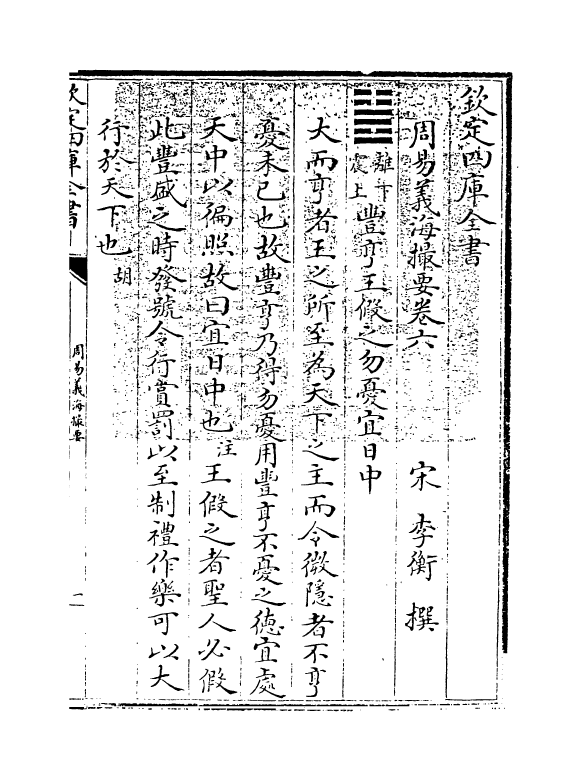 欽定四庫全書
周易義海撮要卷六　宋　李衡　撰
䷶離下震上豐亨王假之勿憂宜日中
大而亨者王之所至為天下之主而令微隱者不亨
憂未已也故豐亨乃得勿憂用豐亨不憂之徳宜處
天中以徧照故曰宜日中也注王假之者聖人必假
此豐盛之時發號令行賞罰以至制禮作樂可以大
行於天下也胡
欽定四庫全書
周易義海撮要